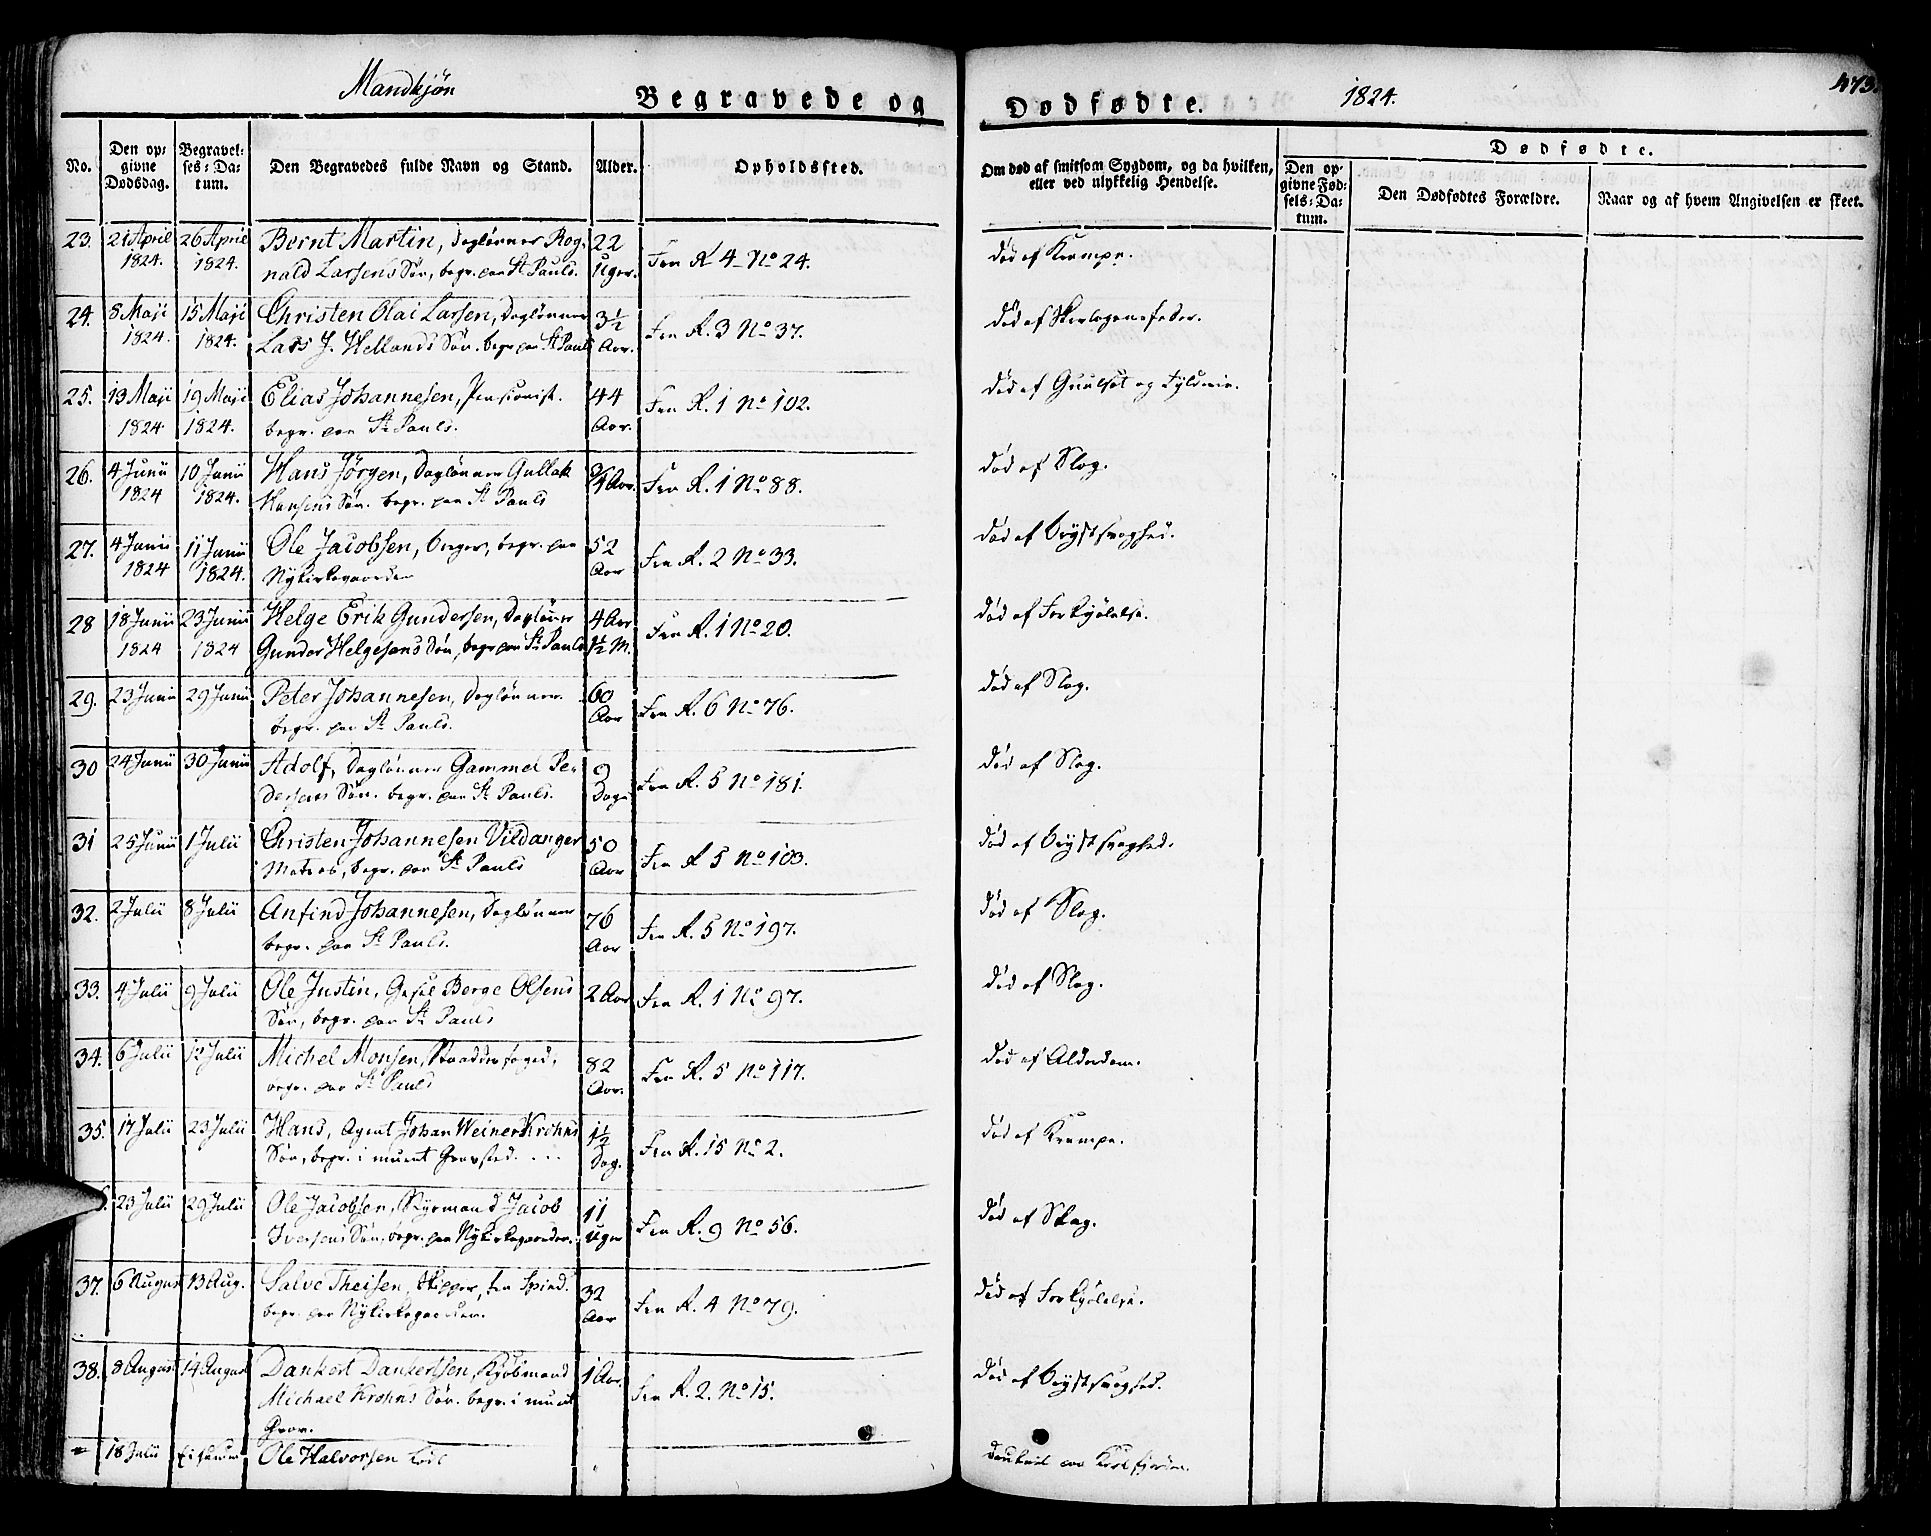 Mandkjøn
Begravede og Dødfødte.
1824.
473.
No.
Den op-
givne
Dødsdag.
Begravel-
ses-Da-
tum.
Den Begravedes fulde Navn og Stand.
Alder.
Opholdssted.
Om død af smitsom Sygdom, og da hvilken,
eller ved ulykkelig Hendelse.
Dødfødte.
Den op-
givne Fød-
sels-Da-
tum.
Den Dødfødtes Forældre.
Naar og af hvem Angivelsen er skeet.
23. 21 April 26 April Bernt Martin, Daglønner Rog- 22 Fra R 4 No 24. død af Krampe.
1824. 1824. nald Larsens Søn, begr. paa St Pauls. Uger.
24. 8 Maji 15 Maji Christen Olai Larsen, Daglønner 3½ Fra R. 3 No 37. død af Skarlagensfeber.
1824. 1824. Lars J. Hellands Søn. begr. paa St Pauls Aar.
25. 13 Maji 19 Maji Elias Johannesen, Pensionist. 44 Fra R. 1 No 102. død af Guulsot og
1824 1824. begr. paa St Pauls. Aar.
26. 4 Junii 10 Junii Hans Jørgen, Daglønner Gullak ¾ Aar. Fra R. 1 No 88. død af Slag.
1824 1824. Hansens Søn. begr. paa St Pauls
27. 4 Junii 11 Junii Ole Jacobsen, Borger, begr. paa 52 Fra R. 2 No 33. død af Brystsvaghed.
1824 1824. Nykirkegaarden Aar
28 18 Junii 23 Junii Helge Erik Gundersen, Dagløner 4 Aar Fra R. 1 No 20. død af Forkjølelse.
1824 1824 Gunder Helgesens Søn, begr paa St Pauls 1½ M.
29. 23 Junii 29 Junii Peter Johannesen, Daglønner. 60 Fra R. 6 No 76. død af Slag.
begr. paa St Pauls. Aar
30 24 Junii 30 Junii Adolf, Daglønner Gammel Pe- 9 Fra R. 5 No 181. død af Slag.
dersens Søn. begr. paa St Pauls. Dage
31 25 Junii 1 Julii Christen Johannesen Vildanger 50 Fra R 5 No 103. død af Brystsvaghed.
Matros, begr. paa St Pauls Aar
32. 2 Julii 8 Julii Anfind Johannesen, Daglønner 76 Fra R. 5 No 197. død af Slag.
begr. paa St Pauls. Aar
33. 4 Julii 9 Julii Ole Justin, Gesel Berge Olsens 2 Aar Fra R. 1 No 97. død af Slag.
Søn, begr. paa St Pauls
34. 6 Julii 12 Julii Michel Monsen, 82 Fra R. 5 No 117. død af Alderdom.
begr. paa St Pauls Aar.
35. 17 Julii 23 Julii Hans, Agent Johan Weiner Krohns 1½ Fra R. 15 No 2. død af Krampe.
Søn, begr. i muret Gravsted. Dag.
23 Julii 29 Julii Ole Jacobsen, Styrmand Jacob 11 Fra R. 9 No 56. død af Slag.
Iversens Søn, begr. paa Nykirkegaarden. Uger
37. 6 August 13 Aug. Salve Theisen, Skipper, fra 32 Fra R. 4 No 79. død af Forkjølelse.
begr. paa Nykirkegaarden. Aar
38. 8 August 14 August Dankert Dankertsen, Kjøbmand 1 Aar. Fra R. 2. No 15. død af Brystsvaghed.
Michael Krohns Søn. begr. i muret
Grav.
18 Julii Ole Halvorsen